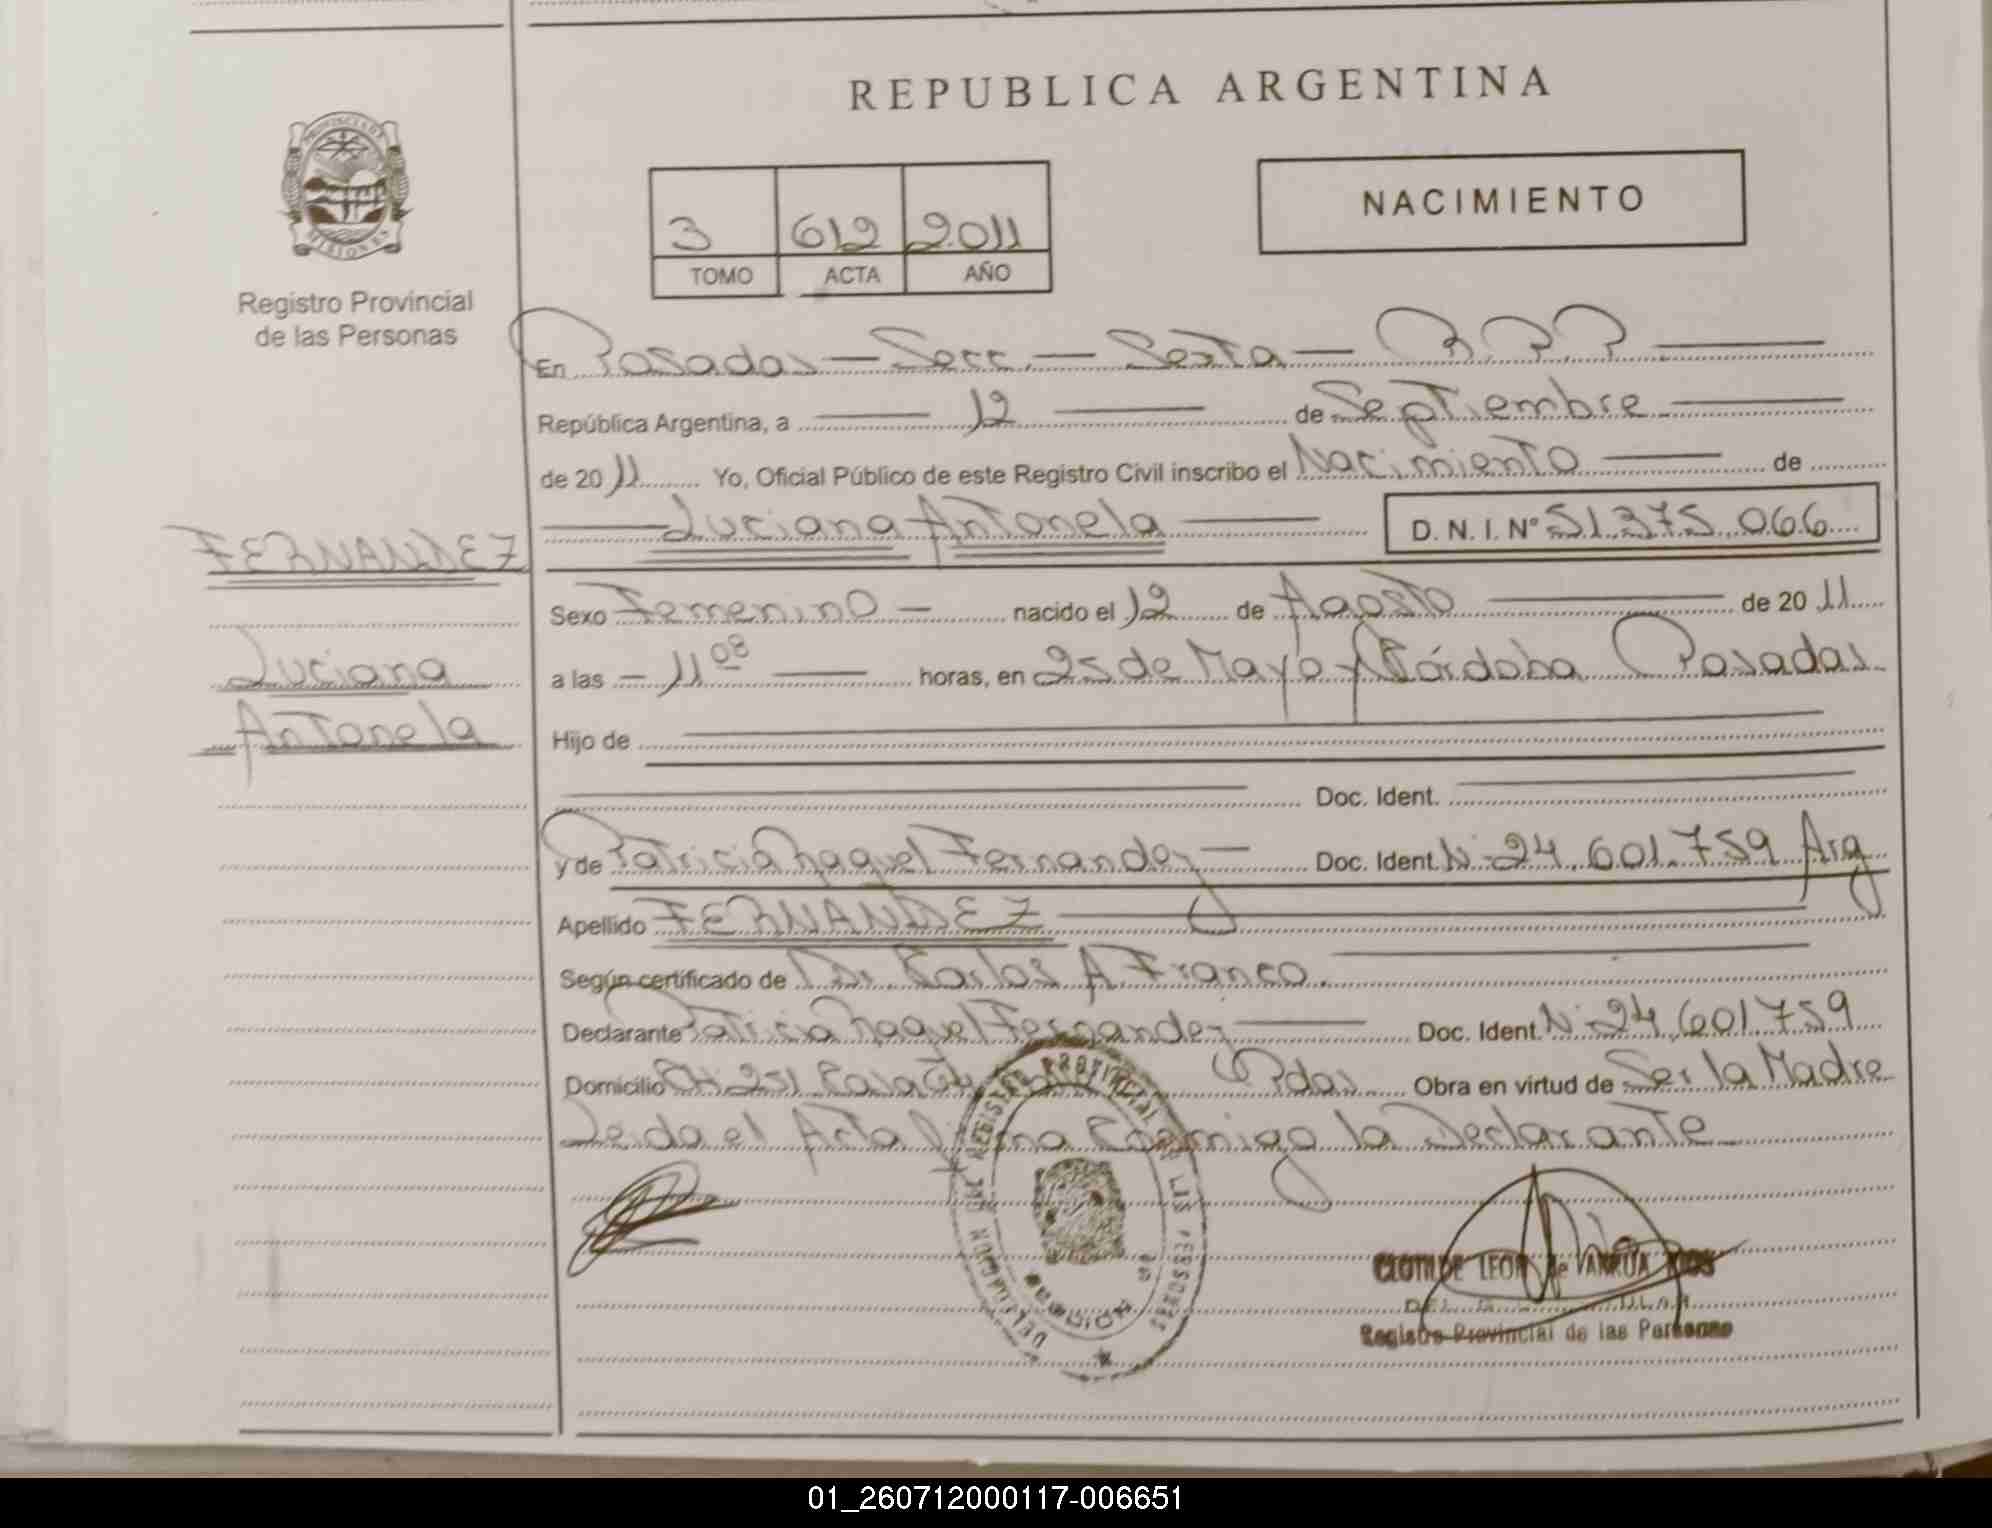 REPUBLICA ARGENTINA
PROVINCIA DE
MISIONES
Registro Provincial
de las Personas
3 612 2011
TOMO ACTA AÑO
NACIMIENTO
En Posadas — Secc. — Sexta — R.P.P.
República Argentina, a 12 de Septiembre
de 2011 Yo, Oficial Público de este Registro Civil inscribo el Nacimiento de
Luciana Antonela D. N. I. Nº 51.375.066
FERNANDEZ
Luciana
Antonela
Sexo Femenino nacido el 12 de Agosto de 2011
a las 11 08 horas, en 25 de Mayo y Córdoba Posadas
Hijo de
Doc. Ident.
y de Patricia Raquel Fernandez Doc. Ident. Nº 24.601.759 Arg
Apellido FERNANDEZ
Según certificado de Dr. Carlos A Franco.
Declarante Patricia Raquel Fernandez Doc. Ident. Nº 24.601759
Domicilio CH 251 Pdas Obra en virtud de Ser la Madre
Leida el Acta firma conmigo la Declarante
DELEGACION DEL REGISTRO PROVINCIAL DE LAS PERSONAS
MISIONES
CLOTILDE LEON de VARRUA RIOS
Registro Provincial de las Personas
01_260712000117-006651